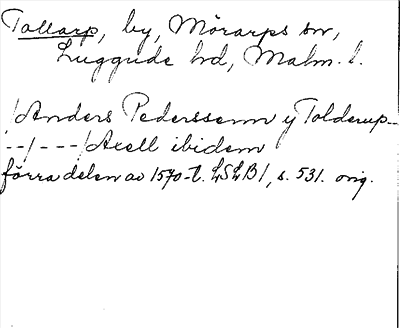 Tallarp, by, Mörarps sn,
Luggude hd, Malm. l.
/Anders Pederssenn y Tolderup--
--/---/Axell ibidem
förra delen av 1570-t. LSLB1, s. 531. orig.